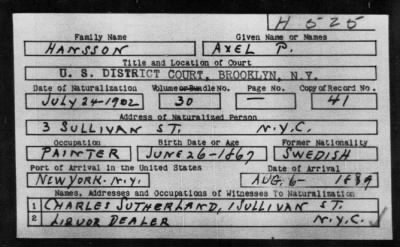 H 525
Family Name Given Name or Names
HANSSON AXEL P.
Title and Location of Court
U. S. DISTRICT COURT, BROOKLYN, N.Y.
Date of Naturalization Volume or Bundle No. Page No. Copy of Record No.
JULY 24-1902 30 — 41
Address of Naturalized Person
3 SULLIVAN ST. N.Y.C.
Occupation Birth Date or Age Former Nationality
PAINTER JUNE 26-1867 SWEDISH
Port of Arrival in the United States Date of Arrival
NEW YORK. N.Y. AUG. 6- 1889
Names, Addresses and Occupations of Witnesses To Naturalization
1 CHARLES SUTHERLAND, 1 SULLIVAN ST.
2 LIQUOR DEALER N.Y.C.